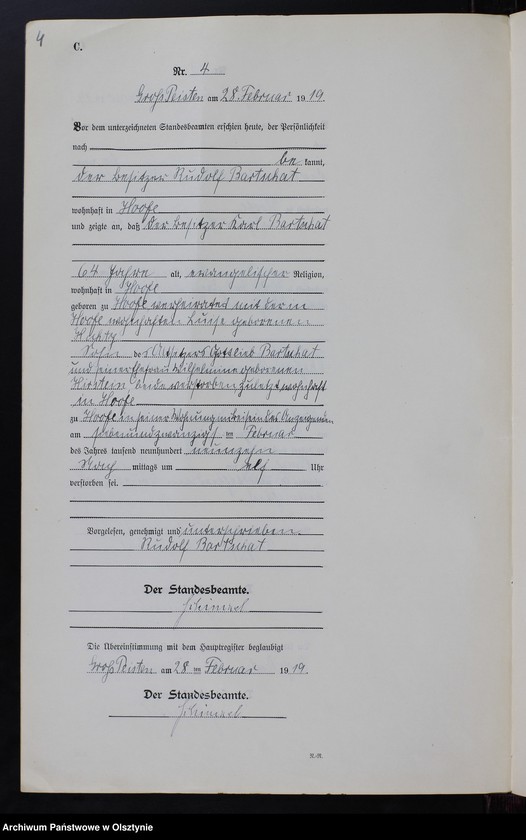 4
C.
Nr. 4
Groß Peisten am 28. Februar 1919.
Vor dem unterzeichneten Standesbeamten erschien heute, der Persönlichkeit
nach
be kannt,
der Besitzer Rudolf Bartschat
wohnhaft in Hoofe
und zeigte an, daß der Besitzer Karl Bartschat
64 Jahre alt, evangelischer Religion,
wohnhaft in Hoofe
geboren zu Hoofe verheiratet mit der in
Hoofe wohnhaften Luise geborenen
Sohn des Altsitzers Gottlieb Bartschat
und seiner Ehefrau Wilhelmine geborenen
Kirstein, beide verstorben, zuletzt wohnhaft
in Hoofe
zu Hoofe in seiner Wohnung im Beisein des Anzeigenden,
am siebenundzwanzigsten Februar
des Jahres tausend neunhundert neunzehn
Nach mittags um elf Uhr
verstorben sei.
Vorgelesen, genehmigt und unterschrieben
Rudolf Bartschat
Der Standesbeamte.
Die Übereinstimmung mit dem Hauptregister beglaubigt
Groß Peisten am 28 ten Februar 1919.
Der Standesbeamte.
Archiwum Państwowe w Olsztynie